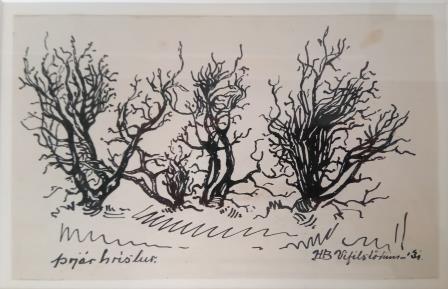 þrjár hríslur.
HB Vífilstöðum - '31